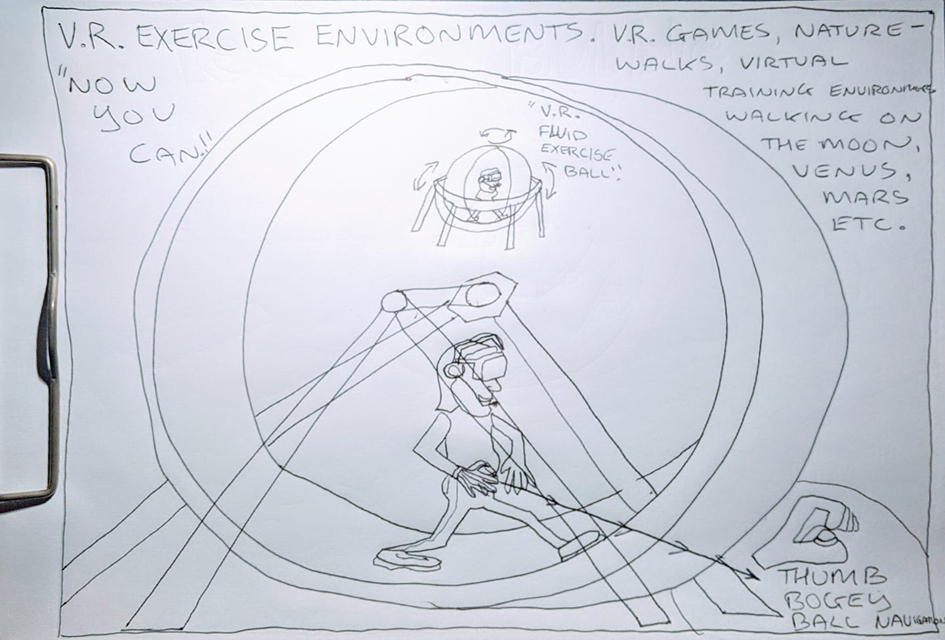 V.R. EXERCISE ENVIRONMENTS. V.R. GAMES, NATURE-
WALKS, VIRTUAL
TRAINING ENVIRONMENTS
WALKING ON
THE MOON,
VENUS,
MARS
ETC.
"NOW
YOU
CAN."
"V.R.
FLUID
EXERCISE
BALL"
THUMB
BOGEY
BALL NAVIGATION